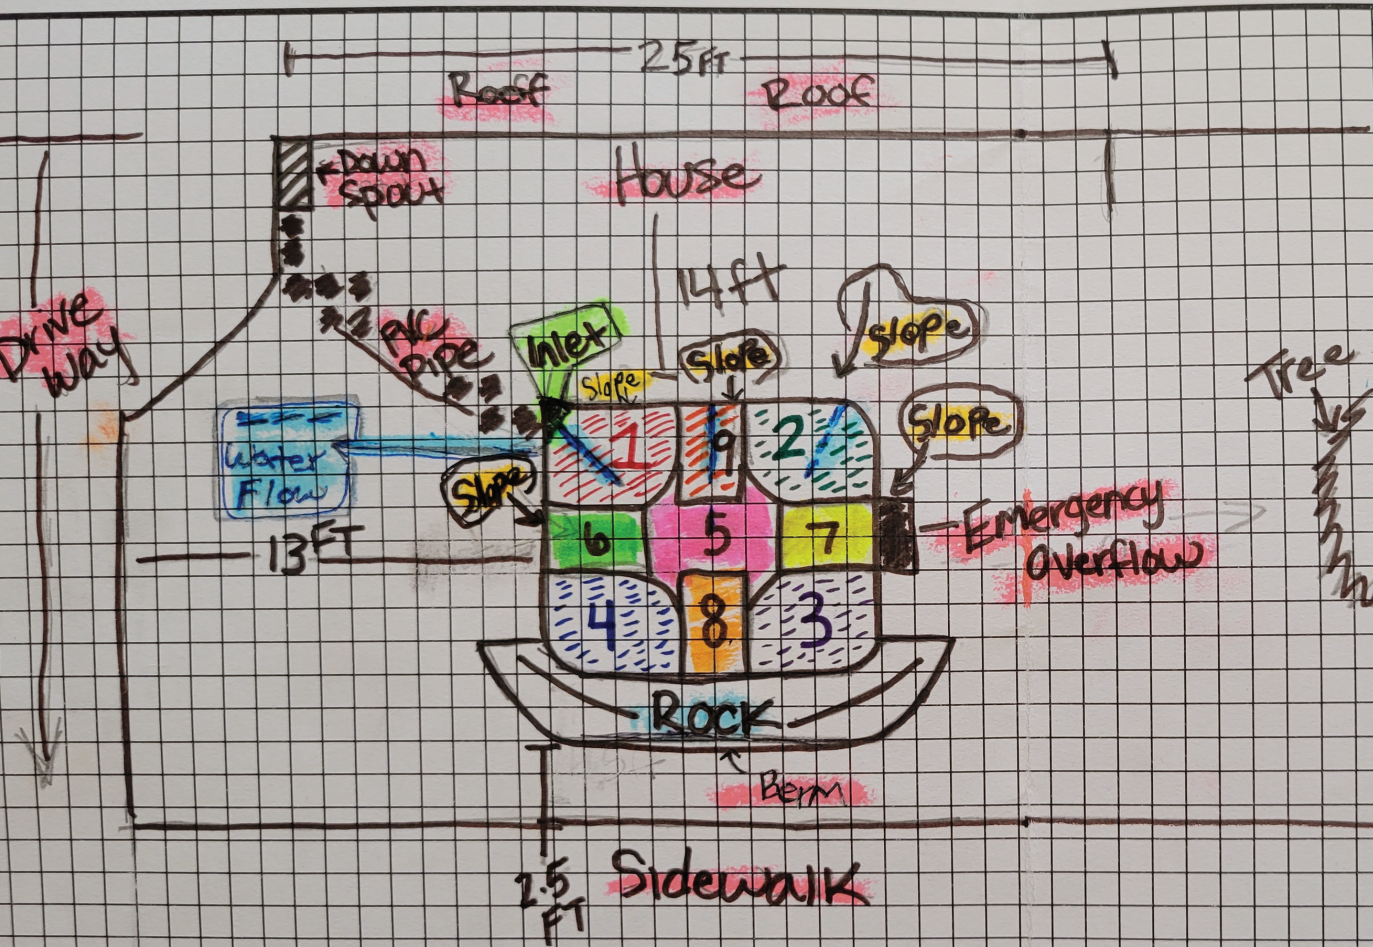 25FT
Roof
Roof
Down
Spout
House
14ft
Drive
Way
PVC
Pipe
Inlet
Slope
Slope
Slope
Slope
Tree
Water
Flow
Slope
1
9
2
6
5
7
Emergency
Overflow
13FT
4
8
3
Rock
Berm
2.5
FT
Sidewalk